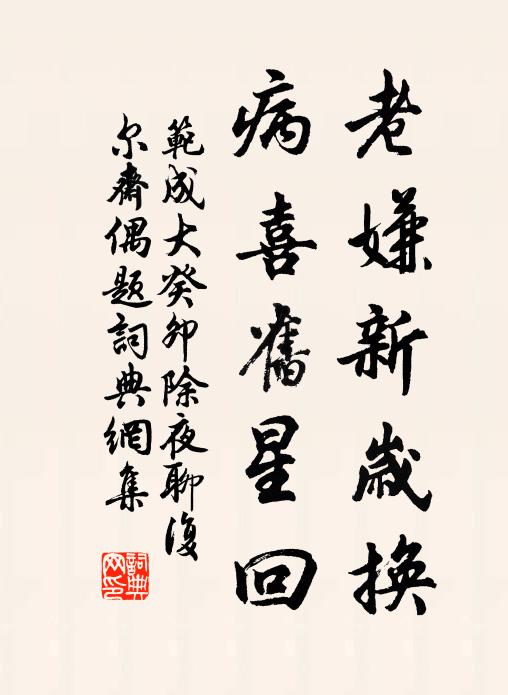 老嫌新歲換
病喜舊星回
範成大癸卯除夜聊復
尔齋偶題詞典網集
詞典網印